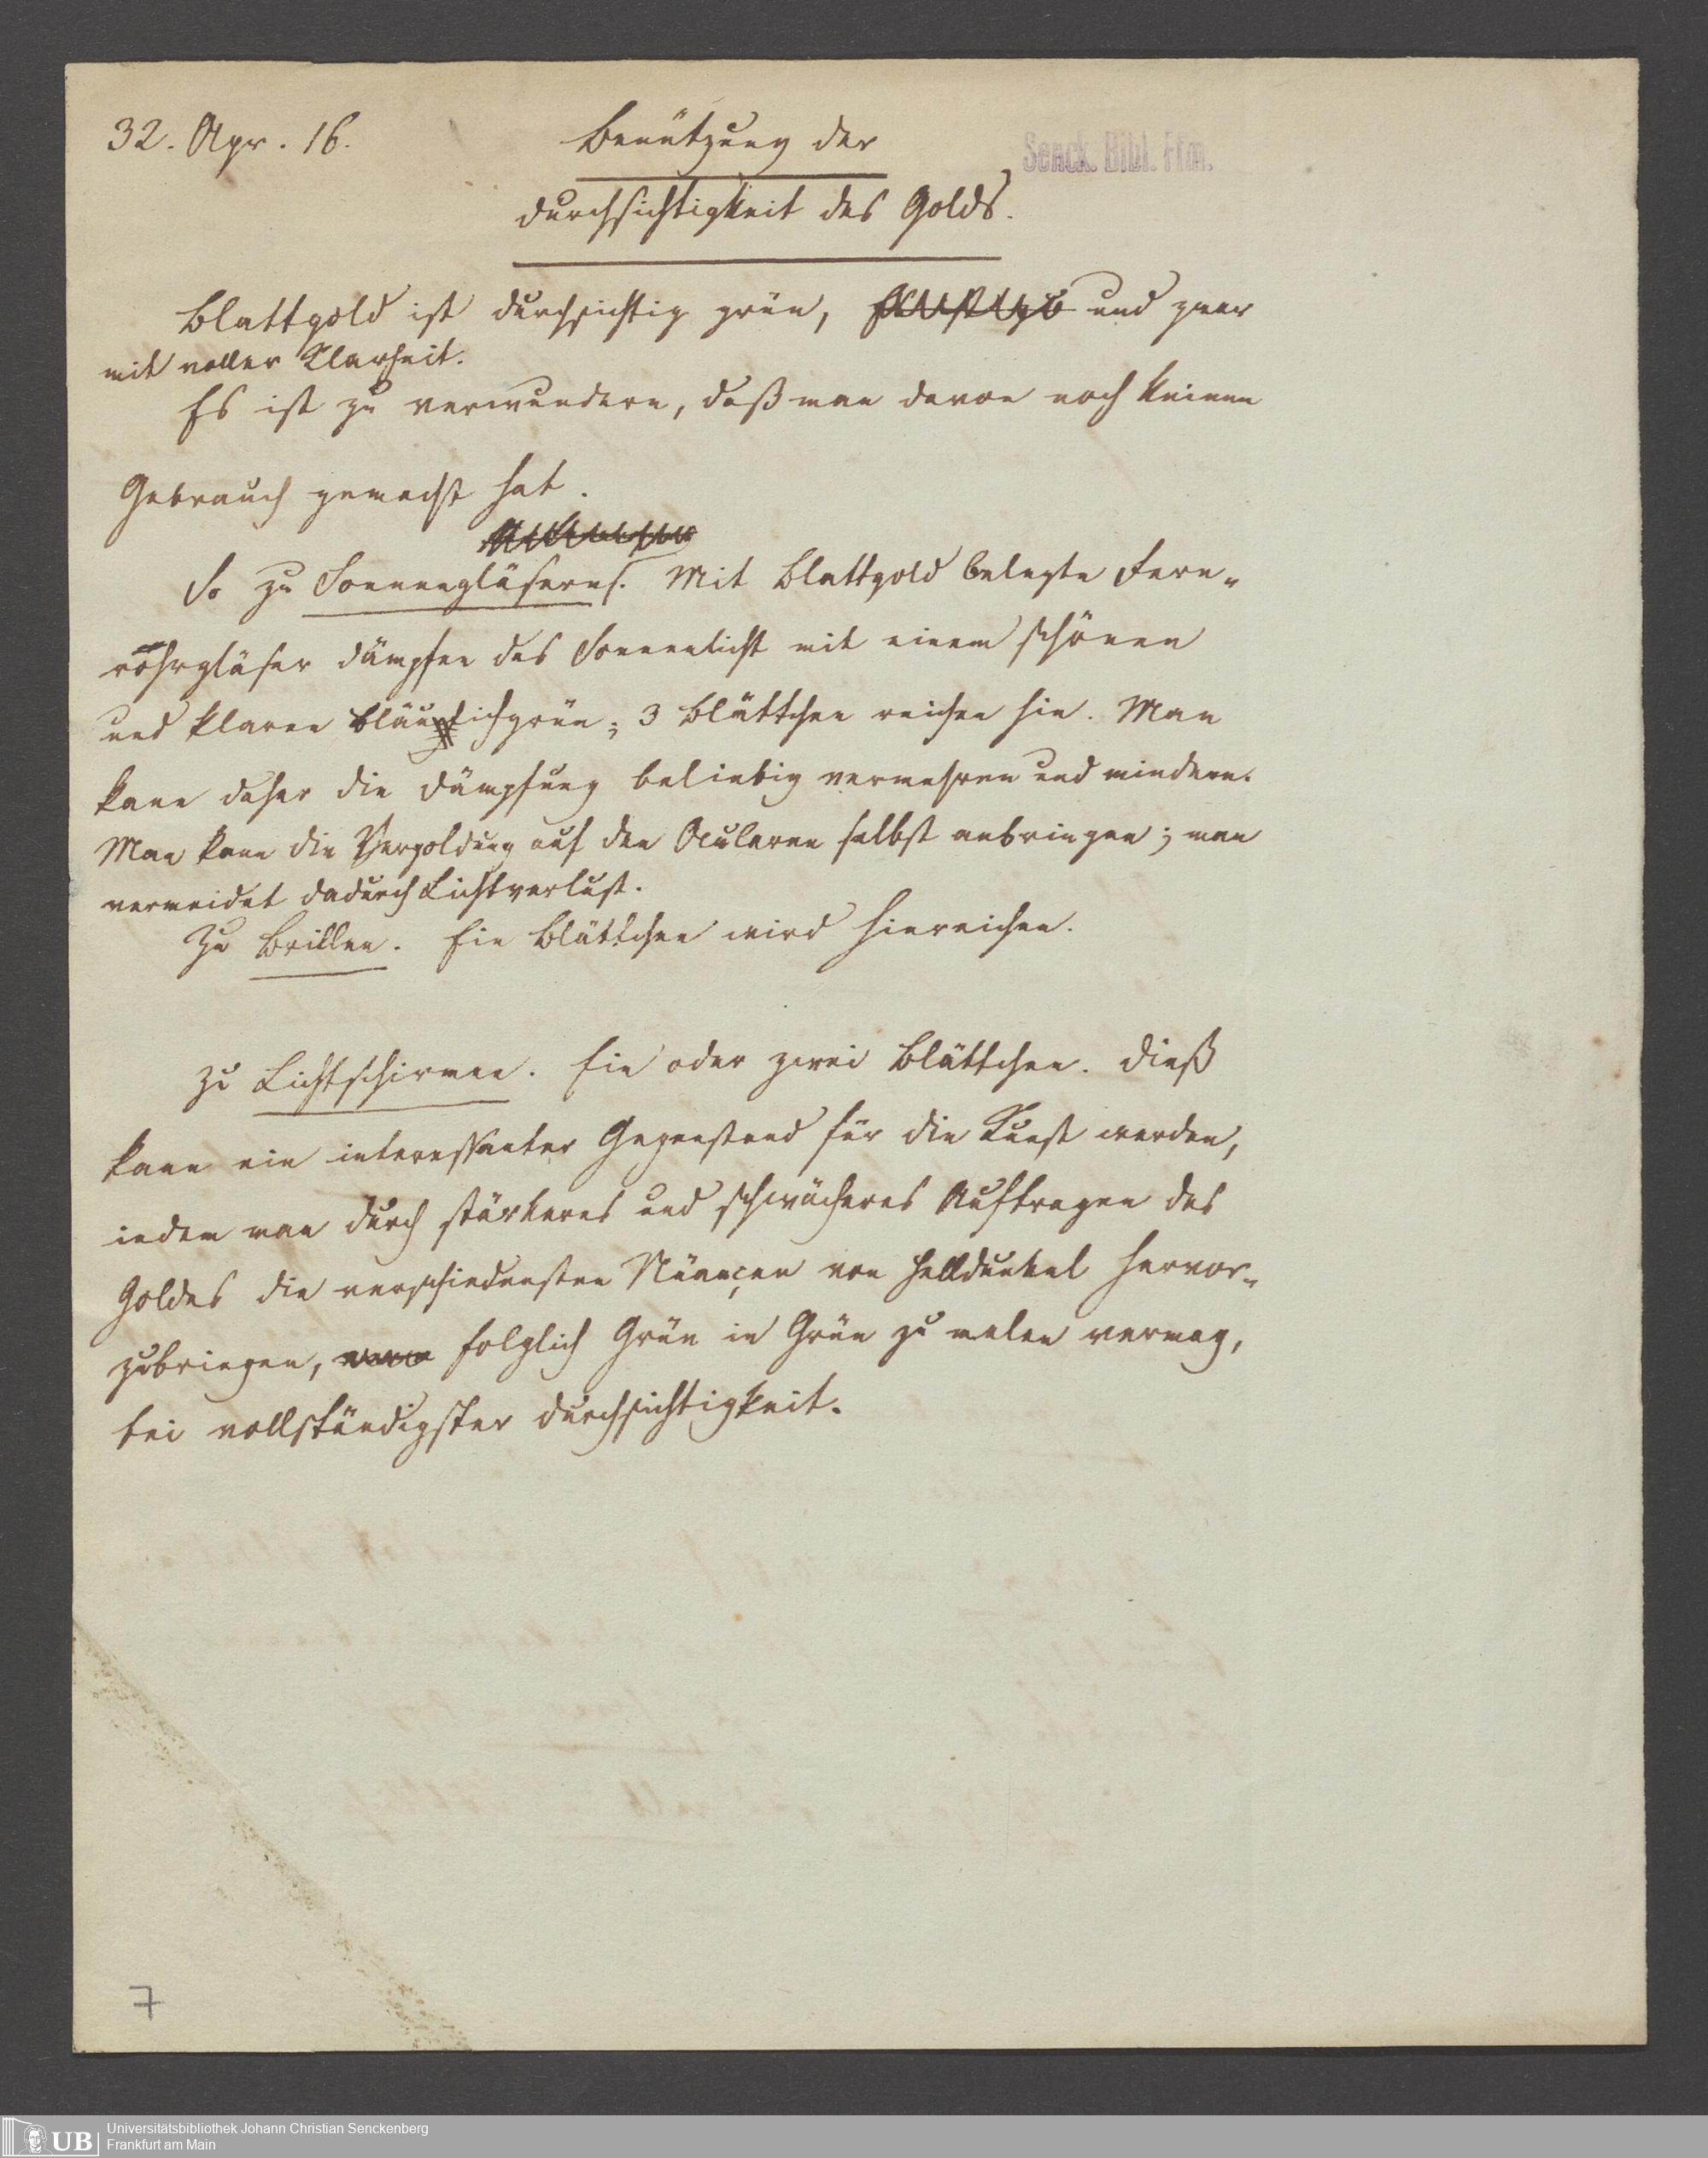 32. Apr. 16.
Benützung der
Senck. Bibl. Ffm.
Durchsichtigkeit des Golds.
Blattgold ist durchsichtig grün, und zwar
mit voller Klarheit.
Es ist zu verwundern, daß man davon noch keinen
Gebrauch gemacht hat.
So zu Sonnengläsern. Mit Blattgold belegte Fern-
rohrgläser dämpfen das Sonnenlicht mit einem schönen
und klaren Bläulichgrün; 3 Blättchen reichen hin. Man
kann daher die Dämpfung beliebig vermehren und mindern.
Man kann die Vergoldung auf den Ocularen selbst anbringen; man
vermeidet dadurch Lichtverlust.
Zu Brillen. Ein Blättchen wird hinreichen.
Zu Lichtschirmen. Ein oder zwei Blättchen. Dieß
kann ein interessanter Gegenstand für die Kunst werden,
indem man durch stärkeres und schwächeres Auftragen des
Goldes die verschiedensten Nüançen von Helldunkel hervor-
zubringen, folglich Grün in Grün zu malen vermag,
bei vollständigster Durchsichtigkeit.
7
UB
Universitätsbibliothek Johann Christian Senckenberg
Frankfurt am Main